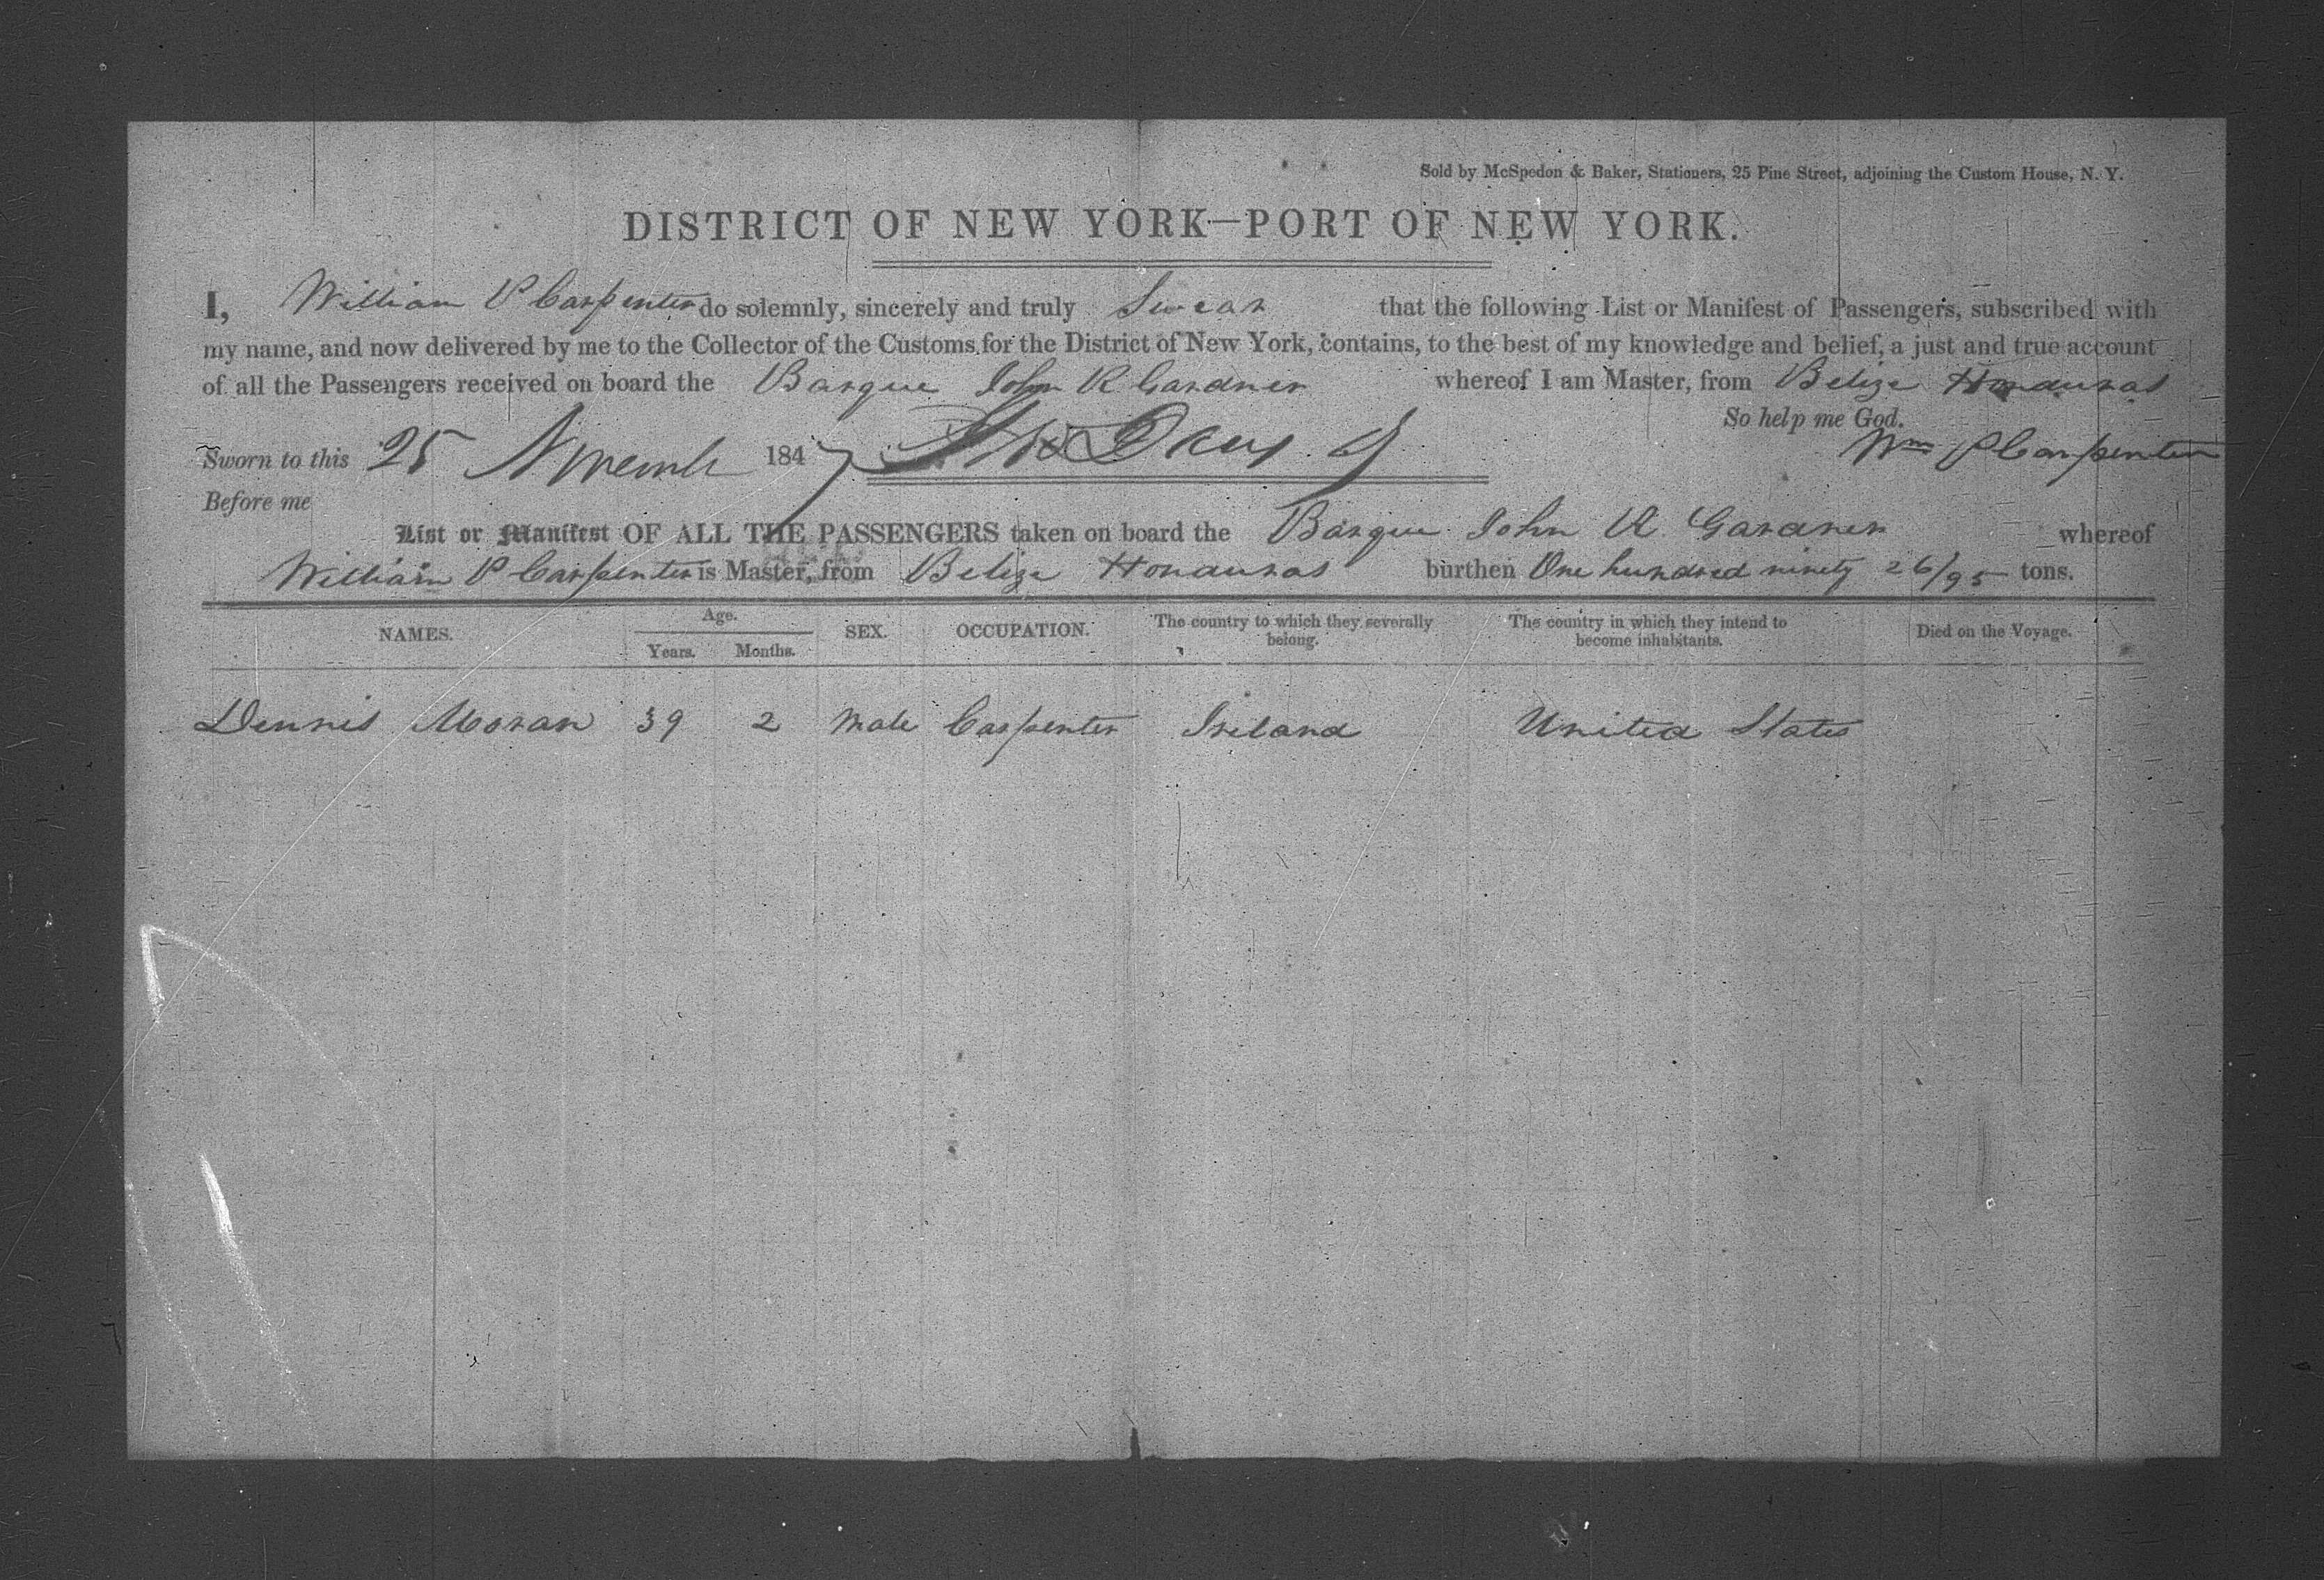 Sold by McSpedon & Baker, Stationers, 25 Pine Street, adjoining the Custom House, N. Y.
DISTRICT OF NEW YORK—PORT OF NEW YORK.
I, William P Carpenter do solemnly, sincerely and truly Swear that the following List or Manifest of Passengers, subscribed with
my name, and now delivered by me to the Collector of the Customs for the District of New York, contains, to the best of my knowledge and belief, a just and true account
of all the Passengers received on board the Barque John R Gardner whereof I am Master, from Belize Honduras
So help me God.
Sworn to this 25 Novemb 1847
Wm P Carpenter
Before me
List or Manifest OF ALL THE PASSENGERS taken on board the Barque John R Gardner whereof
William P Carpenter is Master, from Belize Honduras burthen One hundred ninety 26/95 tons.
NAMES. Age. Years. Months. SEX. OCCUPATION. The country to which they severally belong. The country in which they intend to become inhabitants. Died on the Voyage.
Dennis Moran 39 2 Male Carpenter Ireland United States